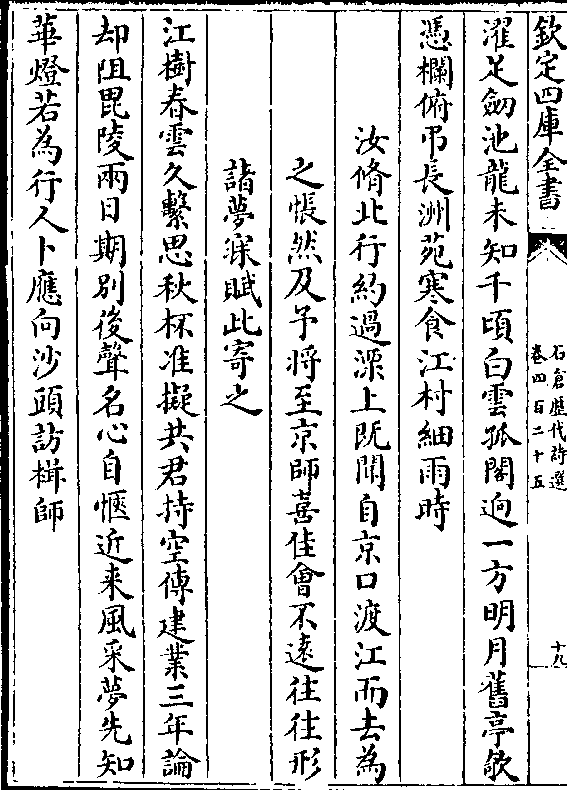 欽定四庫全書
石倉歷代詩選
卷四百二十五
十九
濯足劒池龍未知千頃白雲孤閣逈一方明月舊亭欹
憑欄俯弔長洲苑寒食江村細雨時
汝脩北行約過溧上既聞自京口渡江而去為
之悵然及予将至京師喜佳會不遠往往形
諸夢寐賦此寄之
江樹春雲久繫思秋杯准擬共君持空傳建業三年論
却阻毘陵兩日期别後聲名心自愜近来風采夢先知
華燈若為行人卜應向沙頭訪楫師